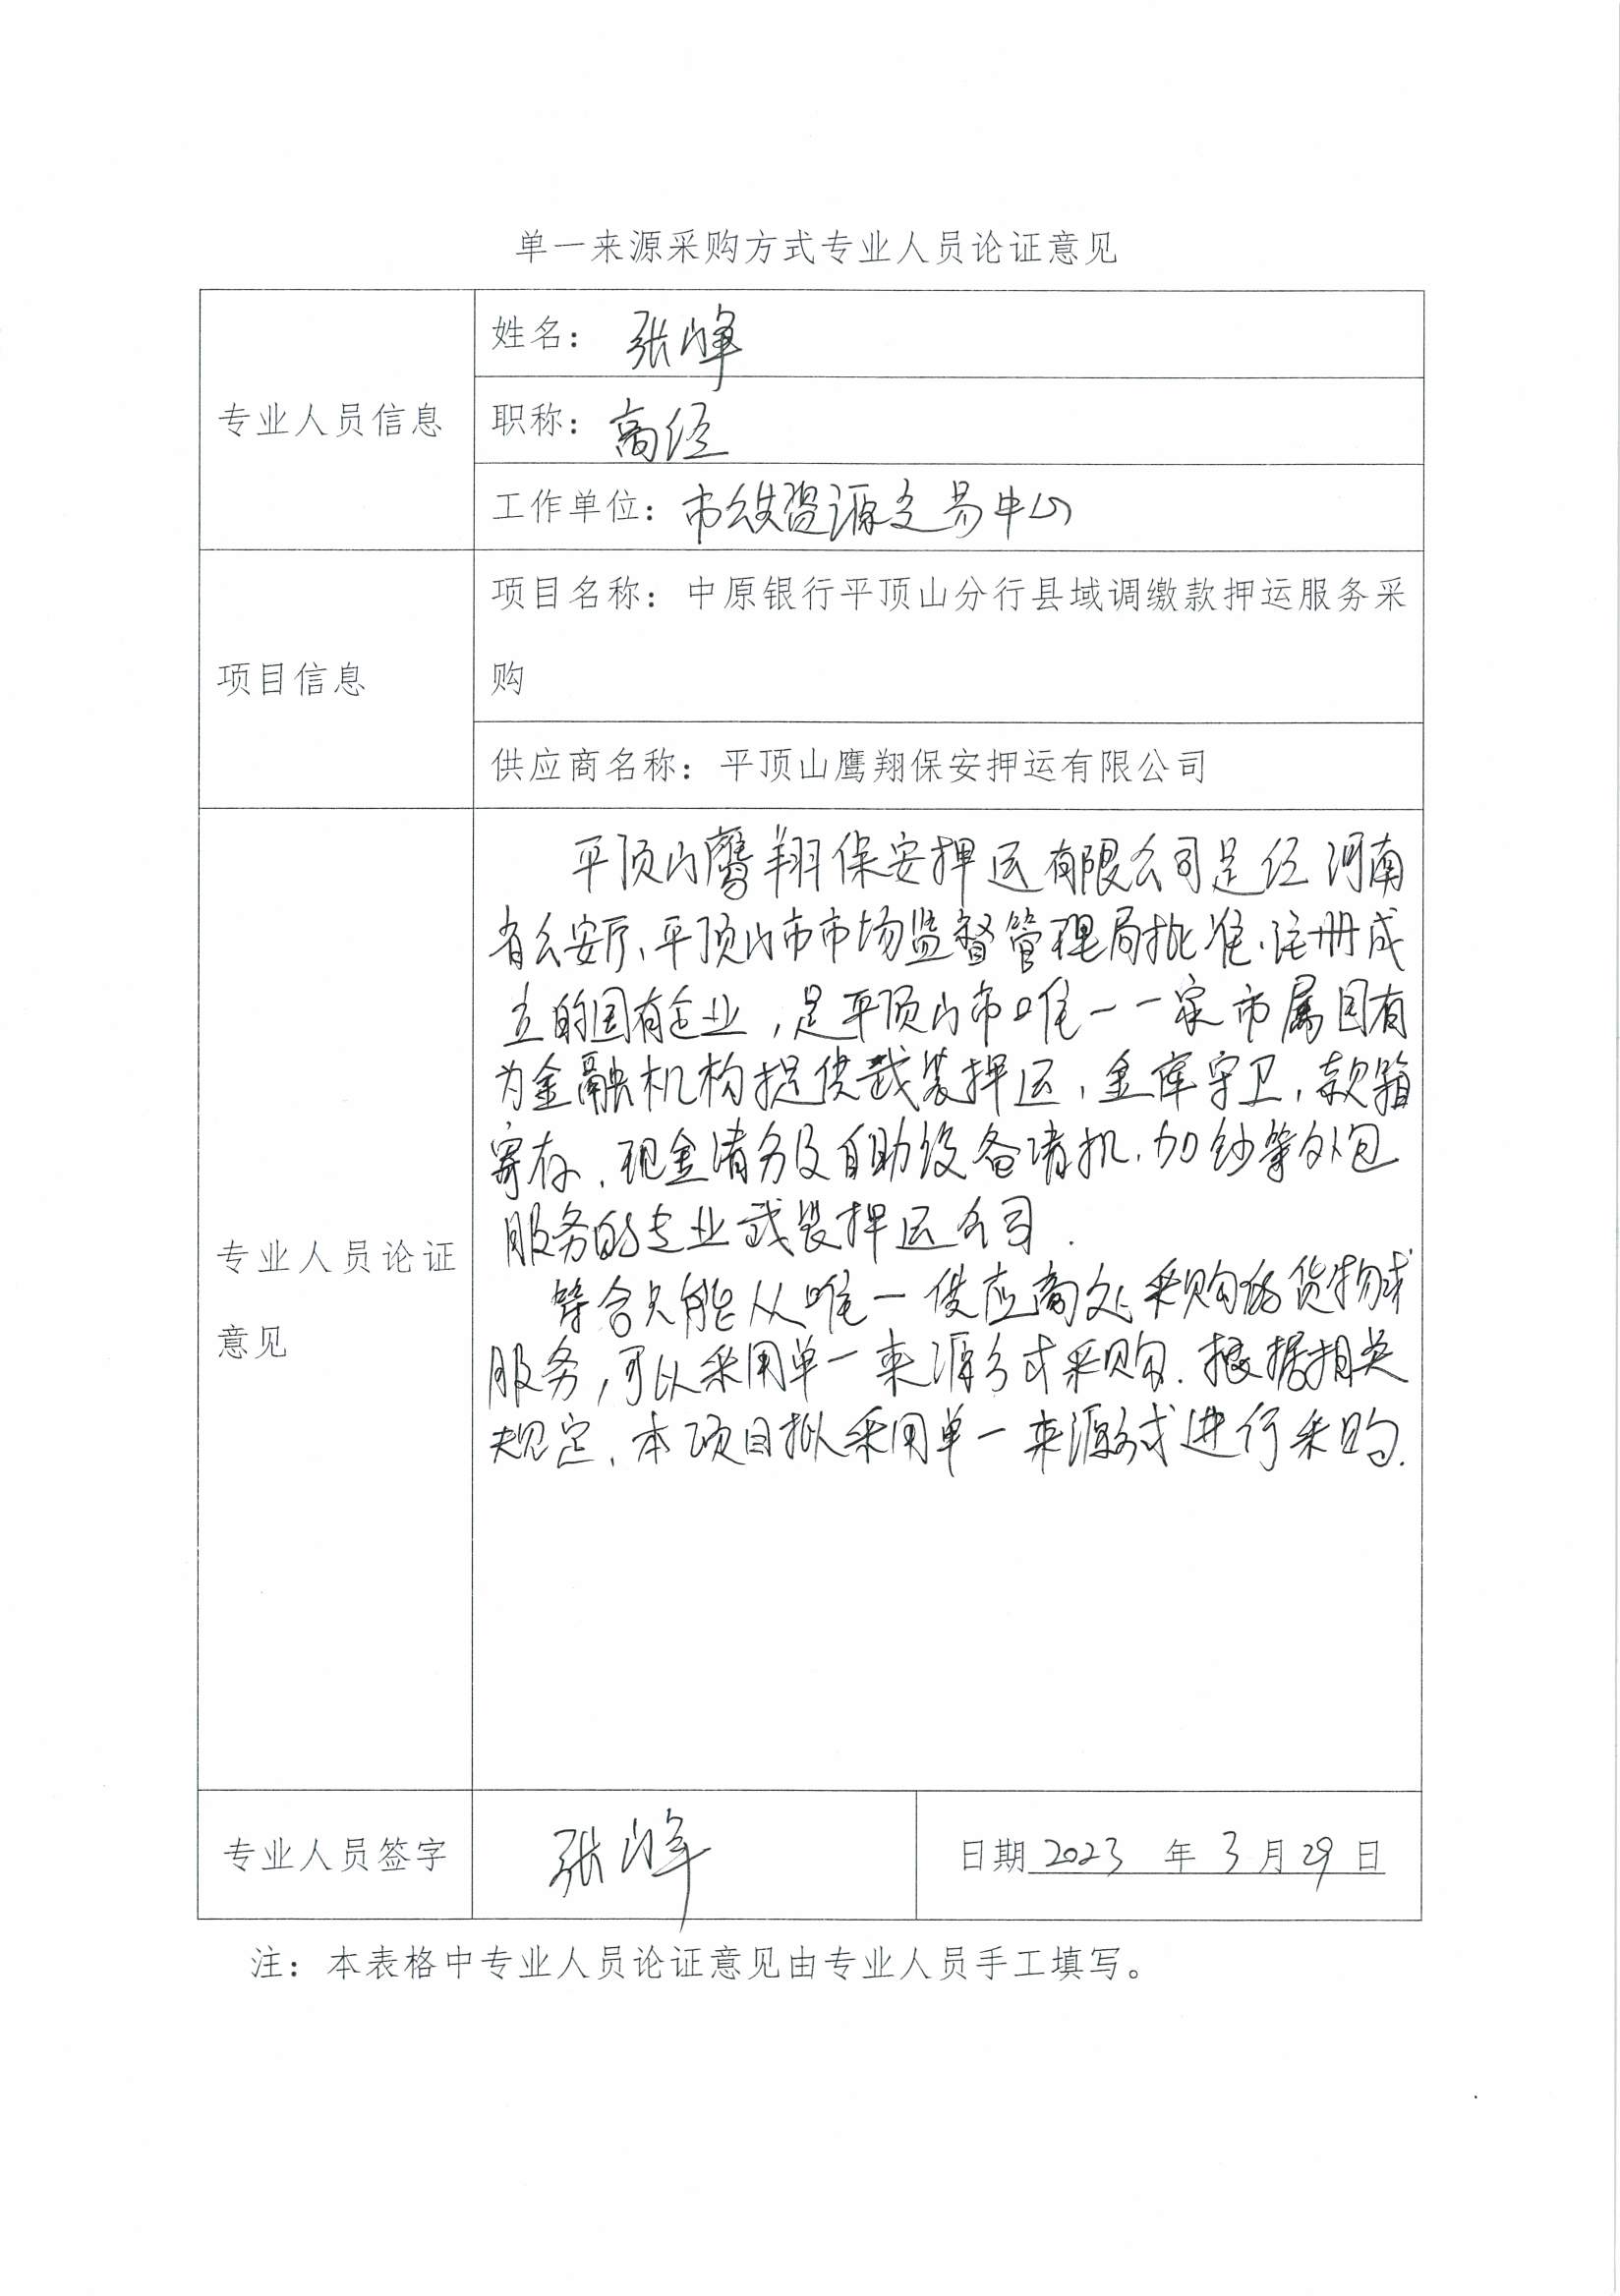 单一来源采购方式专业人员论证意见
专业人员信息
姓名：张峰
职称：高经
工作单位：市公共资源交易中心
项目信息
项目名称：中原银行平顶山分行县域调缴款押运服务采
购
供应商名称：平顶山鹰翔保安押运有限公司
专业人员论证
意见
平顶山鹰翔保安押运有限公司是经河南
省公安厅、平顶山市市场监督管理局批准、注册成
立的国有企业，是平顶山市唯一一家市属国有
为金融机构提供武装押运，金库守卫，款箱
寄存、现金清分及自助设备清机、加钞等外包
服务的专业武装押运公司.
符合只能从唯一供应商处采购的货物或
服务，可以采用单一来源方式采购.根据相关
规定、本项目拟采用单一来源方式进行采购.
专业人员签字
张峰
日期 2023 年 3 月 29 日
注：本表格中专业人员论证意见由专业人员手工填写。